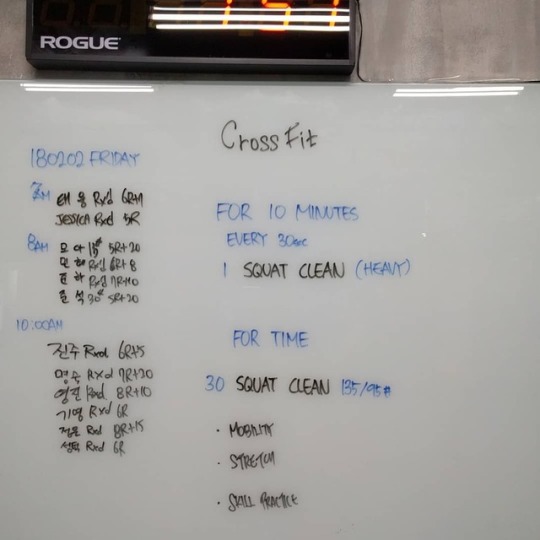 ROGUE
CrossFit
180202 FRIDAY
7AM
태웅 Rxd 6R+1
JESSICA Rxd 5R
8AM
5R+20
Rxd 6R+8
Rxd 7R+10
준석 30# 5R+20
10:00AM
진주 Rxd 6R+5
명수 Rxd 7R+20
영진 Rxd 8R+10
기영 Rxd 6R
Rxd 8R+15
Rxd 6R
FOR 10 MINUTES
EVERY 30sec
1 SQUAT CLEAN (HEAVY)
FOR TIME
30 SQUAT CLEAN 135/95#
· MOBILITY
· STRETCH
· SKILL PRACTICE